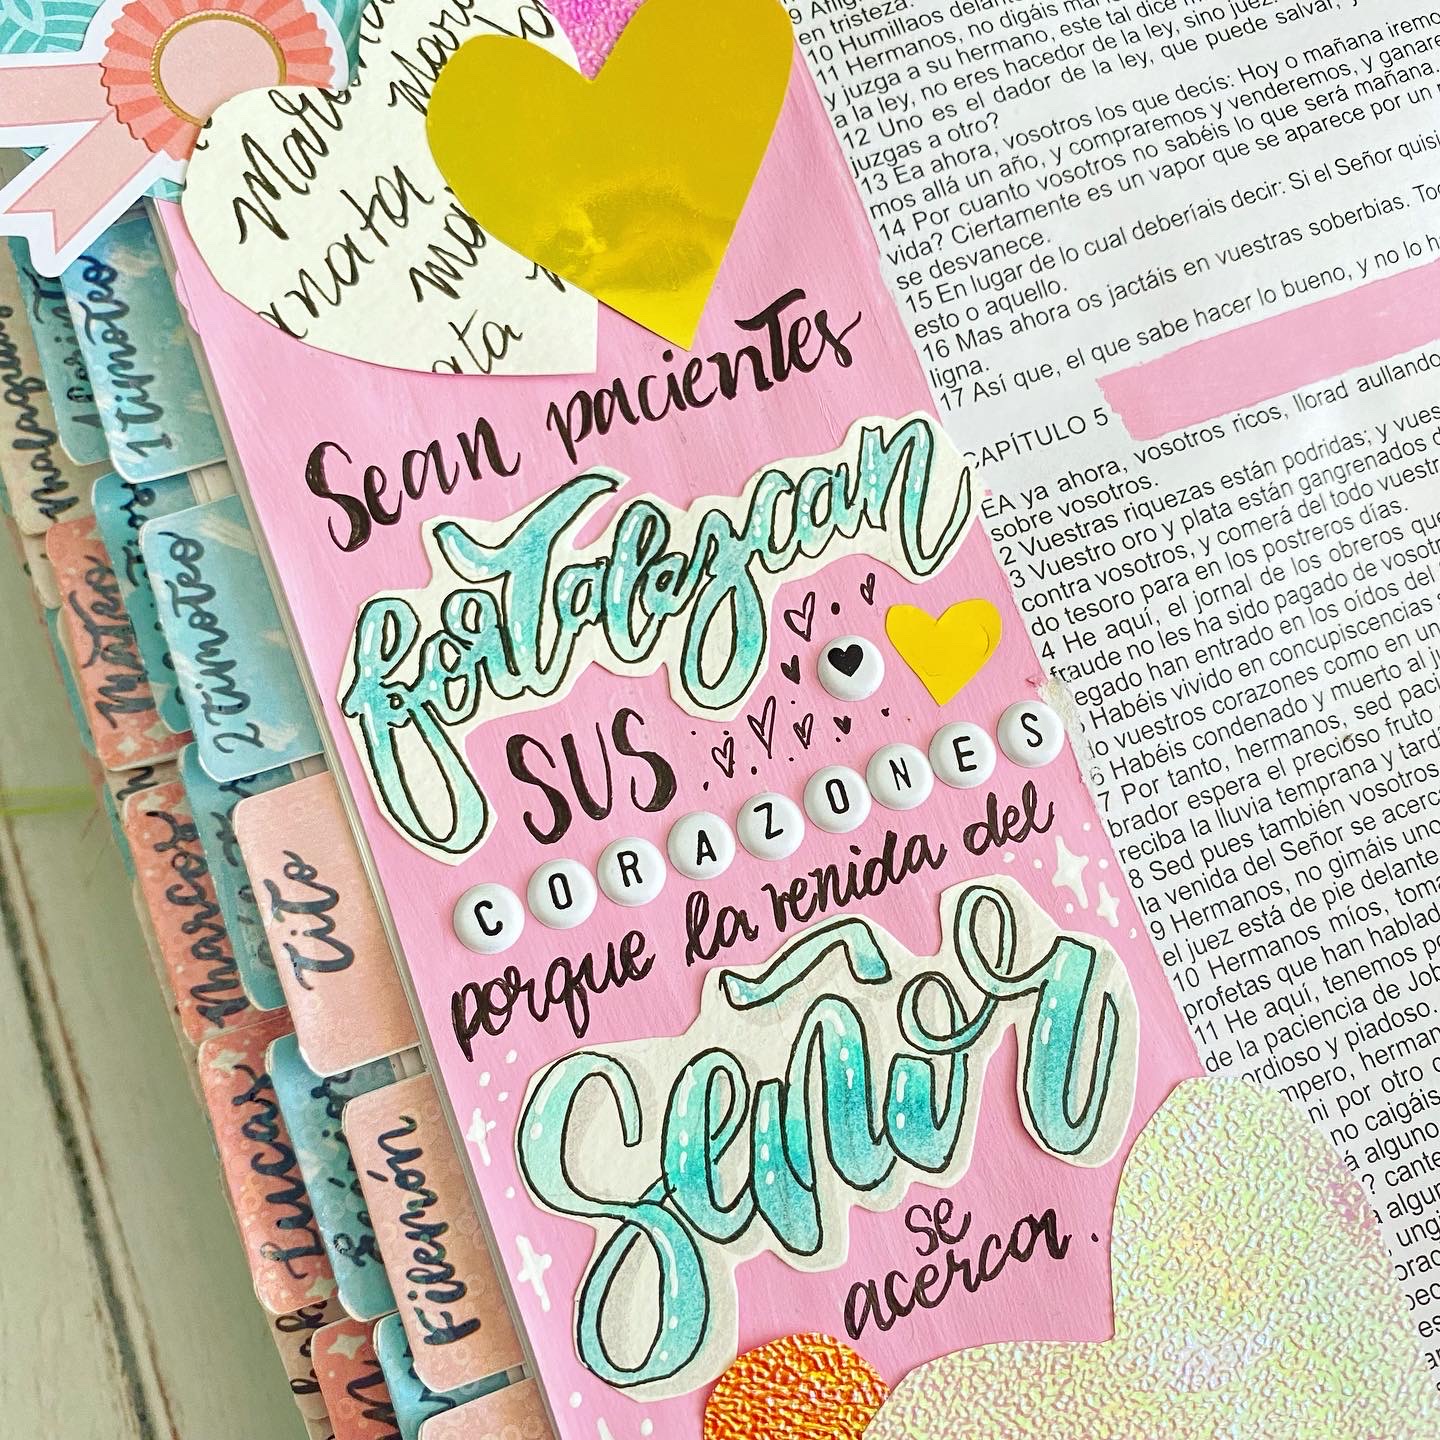 Mara
nata
ma
anata
ata
Sean pacientes
fortalezcan
sus
CORAZONES
porque la venida del
Señor
se
acerca.
1 Timoteo
2 Timoteo
Tito
Filemón
Mateo
Marcos
Lucas
Malaquías
en tristeza.
10 Humillaos delante
11 Hermanos, no digáis
y juzga a su hermano, este tal dice
a la ley, no eres hacedor de la ley, sino juez.
12 Uno es el dador de la ley, que puede salvar,
juzgas a otro?
13 Ea ahora, vosotros los que decís: Hoy o mañana iremo
mos allá un año, y compraremos y venderemos, y ganare
14 Por cuanto vosotros no sabéis lo que será mañana.
vida? Ciertamente es un vapor que se aparece por un
se desvanece.
15 En lugar de lo cual deberíais decir: Si el Señor quisi
esto o aquello.
16 Mas ahora os jactáis en vuestras soberbias. To
ligna.
17 Así que, el que sabe hacer lo bueno, y no lo h
CAPÍTULO 5
EA ya ahora, vosotros ricos, llorad aullando
sobre vosotros.
2 Vuestras riquezas están podridas; y vues
3 Vuestro oro y plata están gangrenados
contra vosotros, y comerá del todo vuestr
do tesoro para en los postreros días.
4 He aquí, el jornal de los obreros que
fraude no les ha sido pagado de vosot
legado han entrado en los oídos del
5 Habéis vivido en concupiscencias
do vuestros corazones como en un
6 Habéis condenado y muerto al ju
7 Por tanto, hermanos, sed paci
brador espera el precioso fruto
reciba la lluvia temprana y tardí
8 Sed pues también vosotros
la venida del Señor se acerca
9 Hermanos, no gimáis uno
el juez está de pie delante
10 Hermanos míos, toma
profetas que han hablad
11 He aquí, tenemos po
de la paciencia de Job
ordioso y piadoso.
mpero, herman
ni por otro
no caigáis
á alguno
? cante
algun
ungi
orac